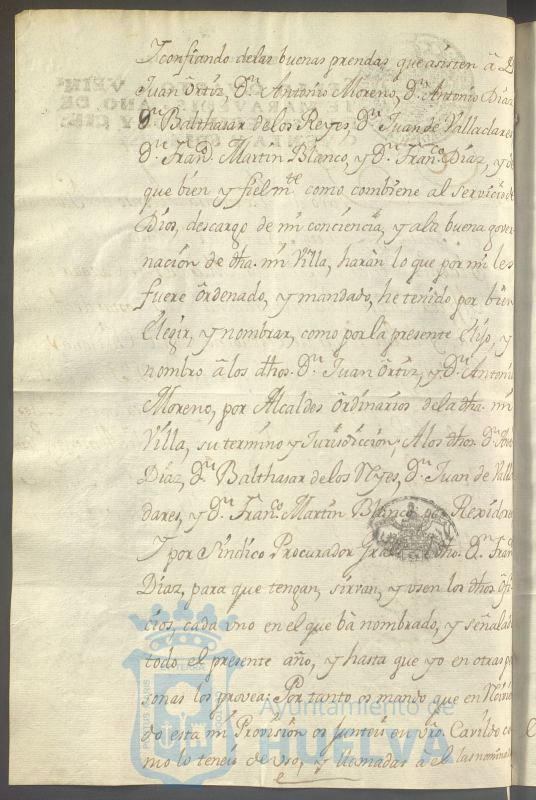 Y confiando de las buenas prendas que asisten â D.
Juan Ôrtiz, D.ⁿ Antonio Moreno, D.ⁿ Antonio Diaz
D.ⁿ Balthasar de los Reyes, D.ⁿ Juan de Valladares
D.ⁿ Fran.co Martin Blanco, y D.ⁿ Fran.co Diaz, y de
que bien y fielm.te como combiene al servicio de
Dios, descargo de mi conciencia, y ala buena gover
nación de dha. mi Villa, harán lo que por mi les
fuere ôrdenado, y mandado, he tenido por bien
Elegir, y nombrar, como por la presente Elijo, y
nombro â los dhos. D.ⁿ Juan Ôrtiz, y D.ⁿ Antonio
Moreno, por Alcaldes Ôrdinarios dela dha. mi
Villa, su termino y Jurisdiccion; Alos dhos. D.ⁿ Ant
Diaz, D.ⁿ Balthasar de los Reyes, D.ⁿ Juan de Valla
dares, y D.ⁿ Fran.co Martin Blanco por Rexidores
Y por Sindico Procurador Gra dho. D.ⁿ Fran.co
Diaz, para que tengan, sirvan, y usen los dhos. ofi
cios, cada uno en el que bâ nombrado, y señalado
todo el presente año, y hasta que yo en otras per
sonas los provea: Por tanto os mando que en
do esta mi Provision os junteis en vro. Cavildo co
mo lo teneis de Uso, y llamadas â el las nomina
Ayuntamiento de
HUELVA